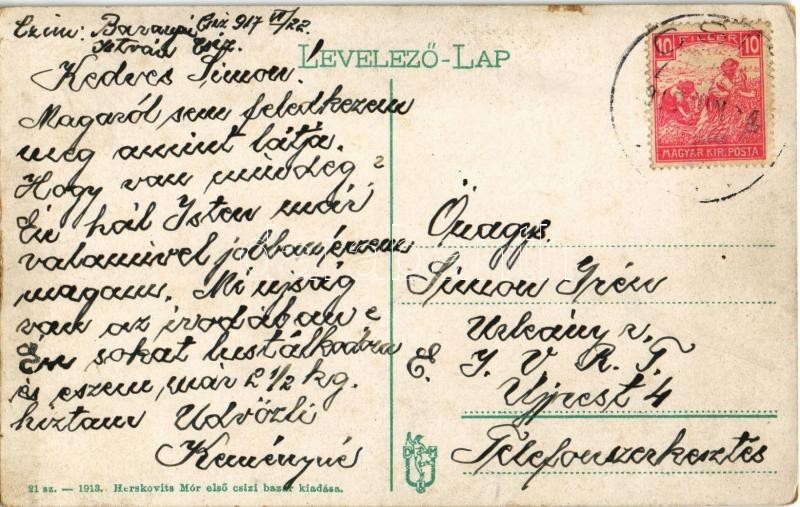 Czim: Baranyai Csiz 917 VI/22
István Csiz.
LEVELEZŐ-LAP
Kedves Simon!
Magaról sem feledkezem
meg amint látja.
Hogy van mindég?
Én hál Isten már
valamivel jobban érzem
magam. Mi ujság
van az irodában?
Én sokat lustálkodom
és eszem már 2 1/2 kg.
híztam Udvözli
Keményné
10 FILLÉR 10
MAGYAR KIR. POSTA
Önagys.
Simon Irén
Urkány u.
E. I. V. R. T.
Ujpest 4
Telefonszerkesztés
21 sz. — 1913. Herskovits Mór első csizi bazár kiadása.